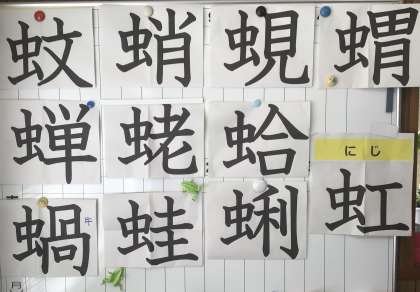 蚊 蛸 蜆 蝟
蝉 蛯 蛤
にじ
虹
蝸 蛙 蜊